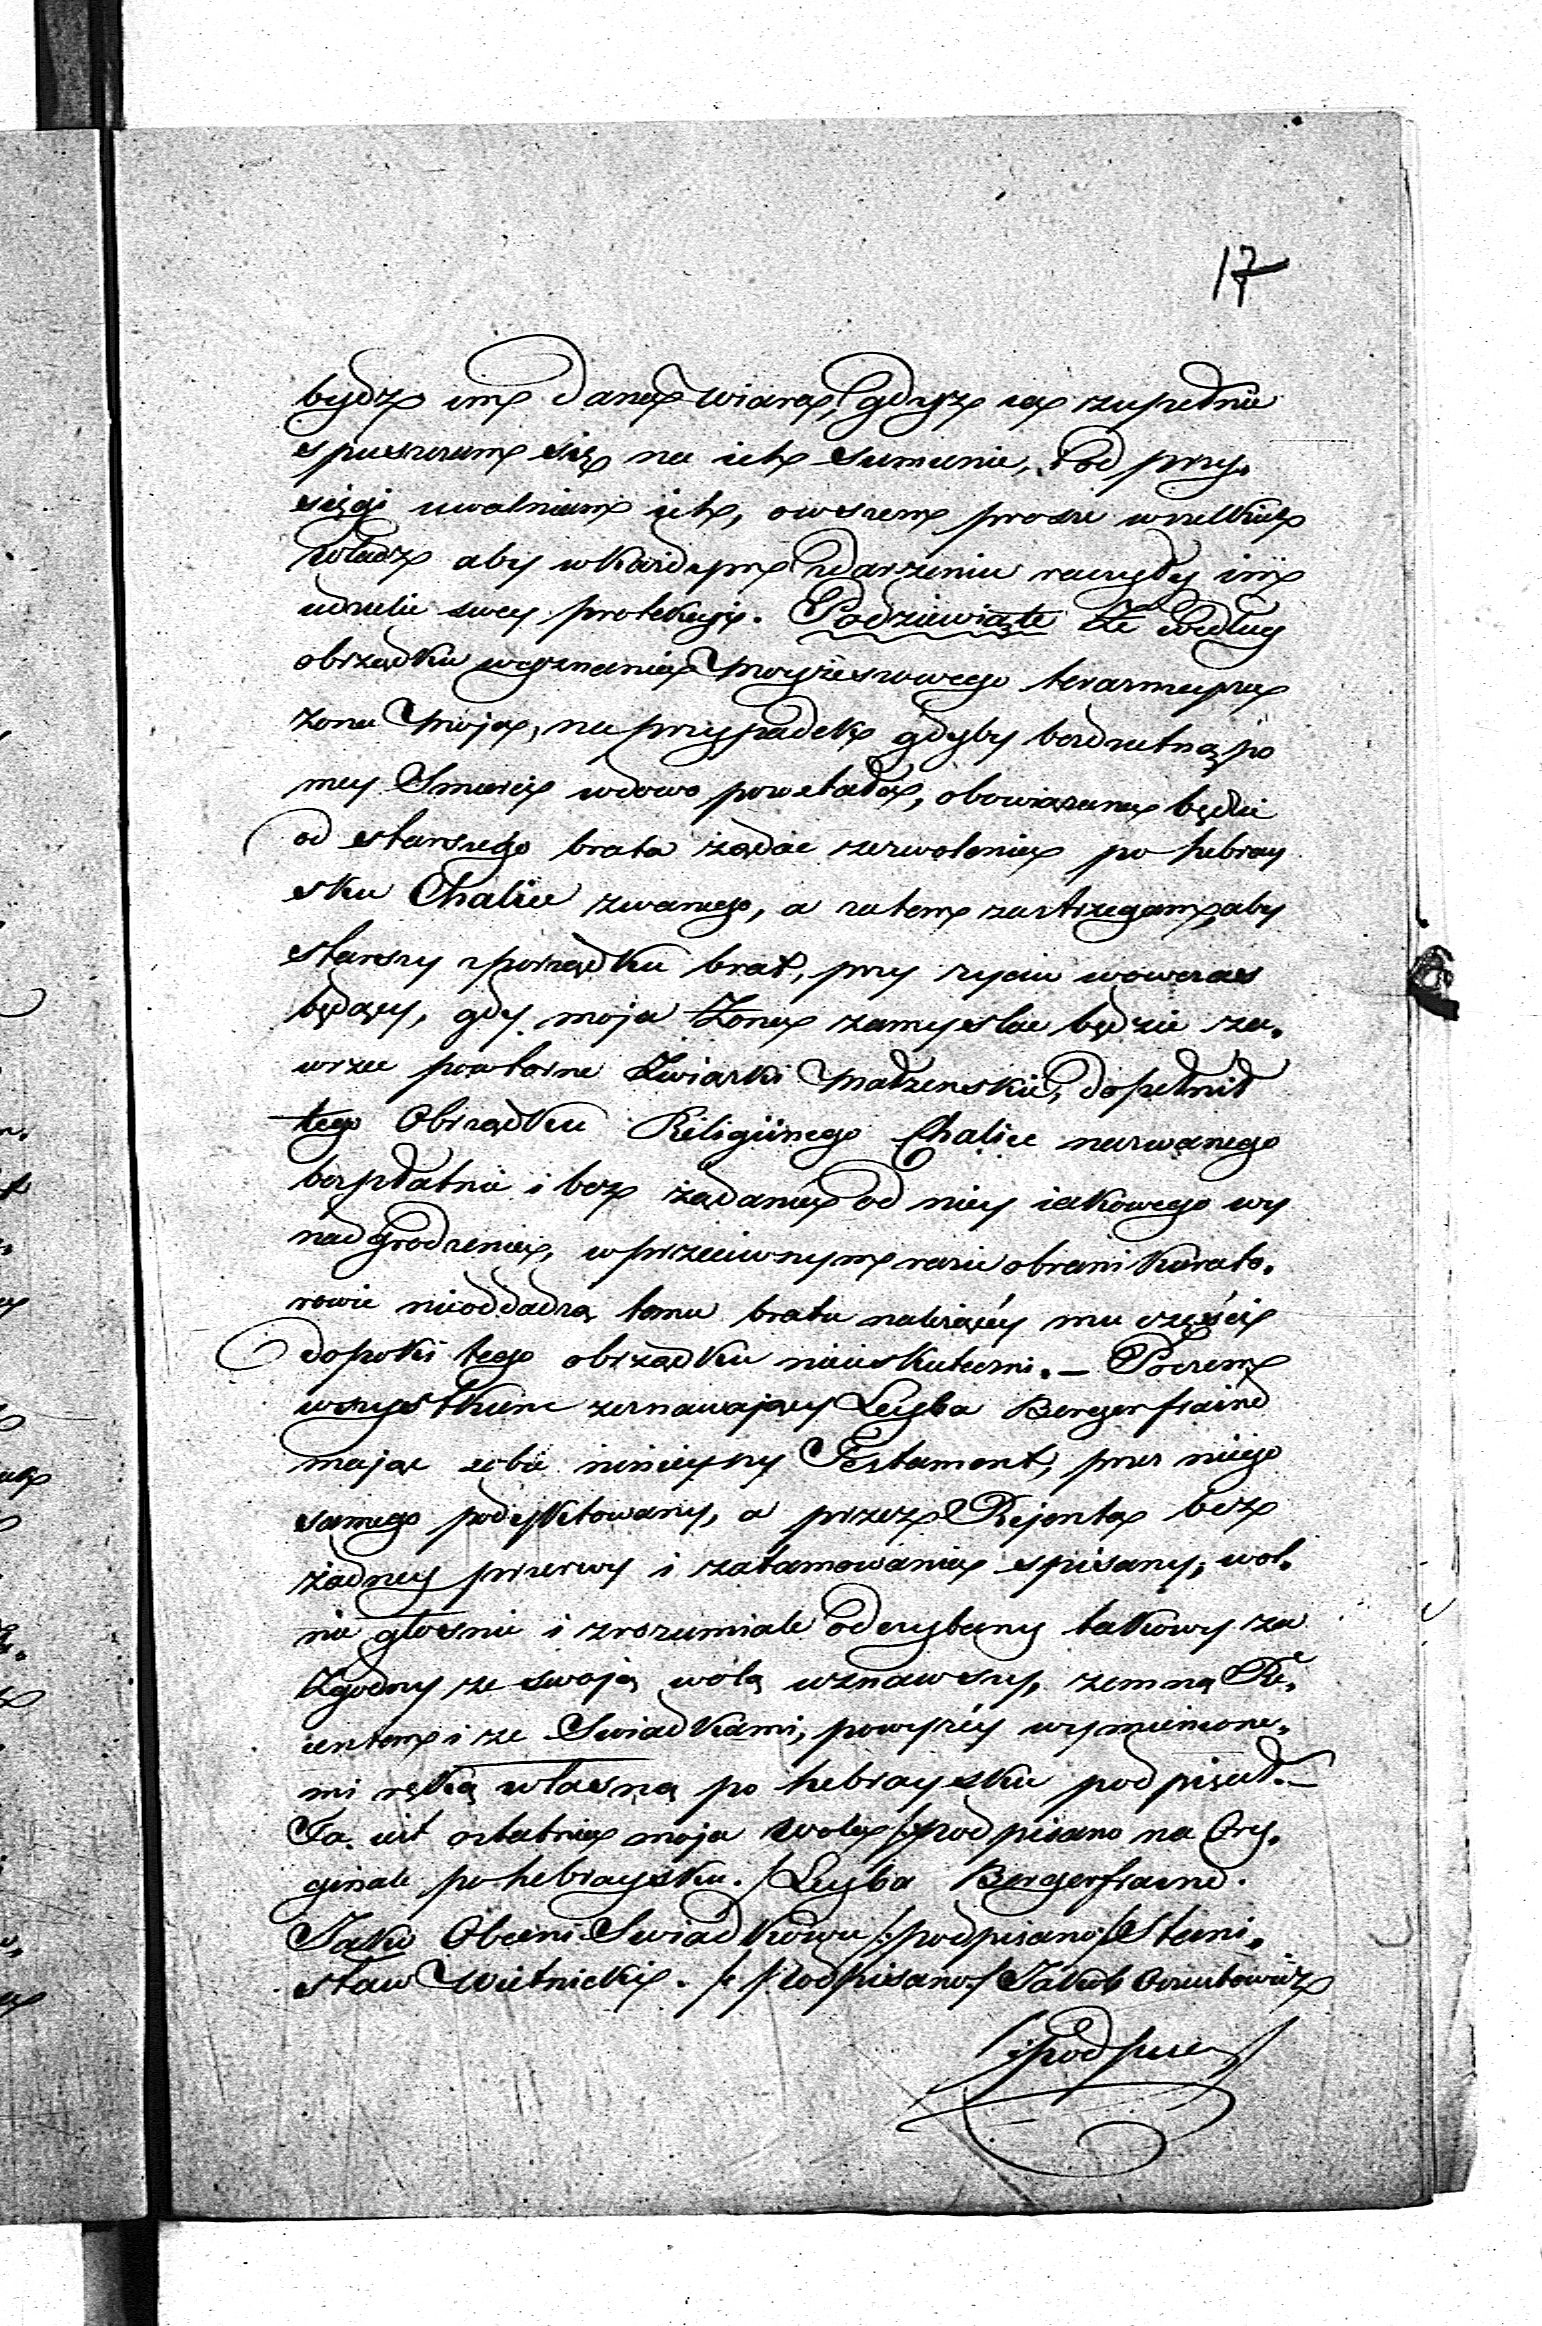 17
bydź im dana wiara, gdyż ia zupełnie
spuszczam się na ich sumunie, Pod przy„
sięgi uwalniam ich, owszem proszę wszelkich
Władz aby w każdym zdarzeniu raczyły im
udzielić swey protekcyi. Podziewiąte Że według
obrządku wyznania Moyżeszowego terazneysza
żona Moja, na przypadek gdyby bezdzietną po
mey Smierci wdową powstała, obowiązana będzie
od starszego brata żądać zezwolenia po hebray
sku Chalice zwanego, a zatem zastrzegam, aby
starszy z porządku brat, przy życiu wowczas
będący, gdy moja Żona zamyslać będzie za„
wrzeć powtorne Związki Małżenskie, dopełnił
tego Obrządku Religiinego Chalice nazwanego
bezpłatnie i bez żądania od niey iakowego wy
nadgrodzenia, w przeciwnym razie obrani Kurato„
rowie nieoddadzą temu bratu należącéy mu części
dopoki tego obrządku nieuskuteczni. – Poczem
wszystkiem zeznawający Leyba Bergerfraind
mając sobie ninieyszy Testament, przez niego
samego podyktowany, a przez Rejenta bez
żadney przerwy i zatamowania spisany, wol„
no głosnie i zrozumiale odczytany takowy za
Zgodny ze swoją wolą uznawszy, zemną Re„
ientem i ze Swiadkami, powyżéy wymienione„
mi ręką własną po hebraysku podpisał. –
Ta iest ostatnia moja wola /:podpisano na Ory„
ginale po hebraysku:/ Leyba Bergerfraind.
Jako Obecni Swiadkowie /:podpisano:/ Stani„
sław Wietnicki. /:podpisano:/ Jakób
/:podpisano:/